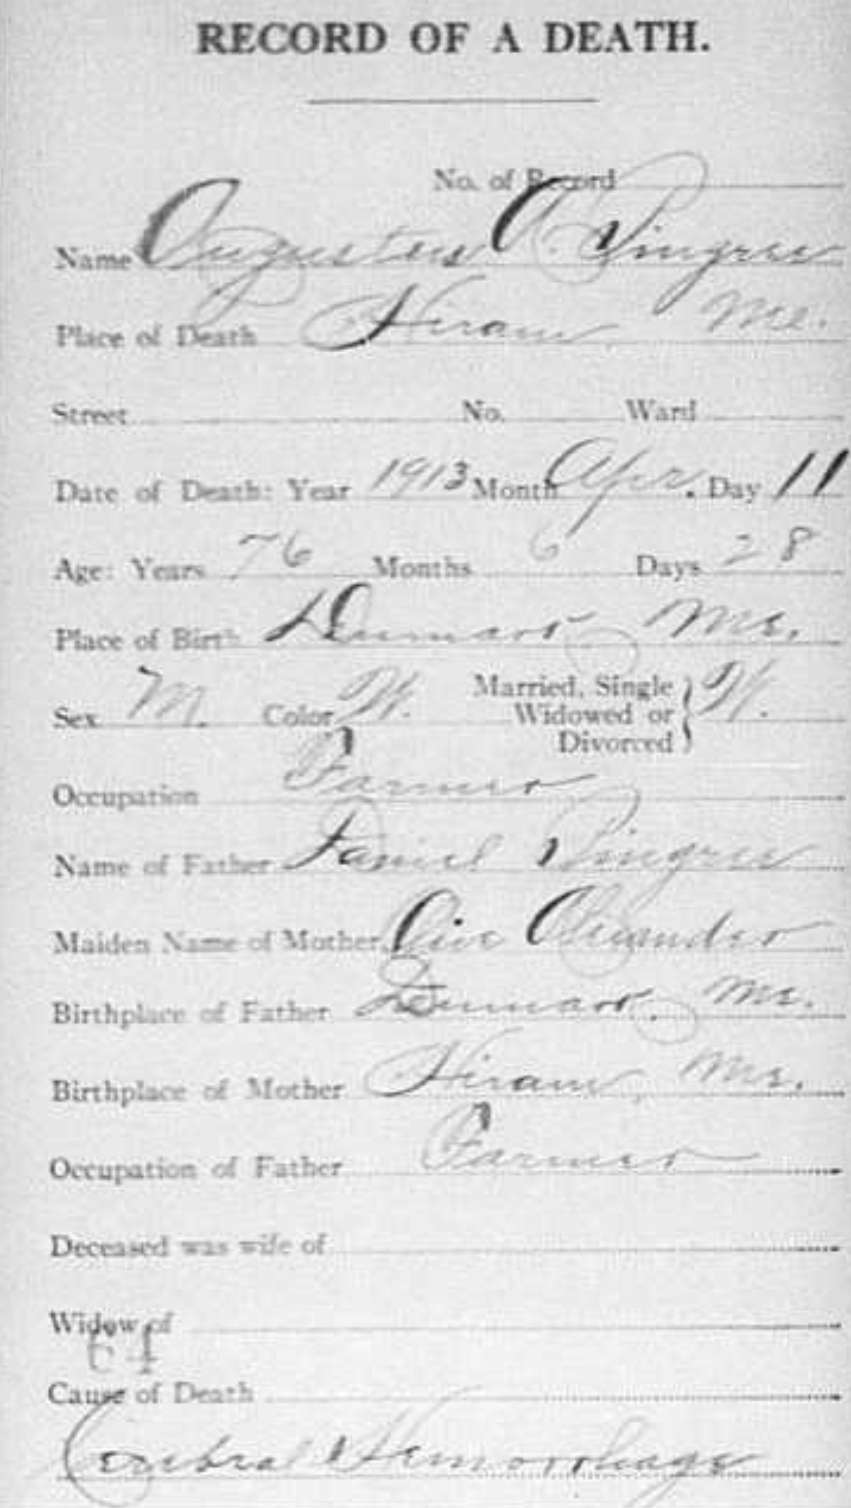 RECORD OF A DEATH.
No. of Record
Name Augustus A. Pingree
Place of Death Hiram, Me.
Street No. Ward
Date of Death: Year 1913 Month Apr. Day 11
Age: Years 76 Months 6 Days 28
Place of Birth Denmark, Me.
Sex M. Color W. Married, Single Widowed or Divorced } W.
Occupation Farmer
Name of Father Daniel Pingree
Maiden Name of Mother
Birthplace of Father Denmark, Me.
Birthplace of Mother Hiram, Me.
Occupation of Father Farmer
Deceased was wife of
Widow of
64
Cause of Death
Cerebral Hemorrhage